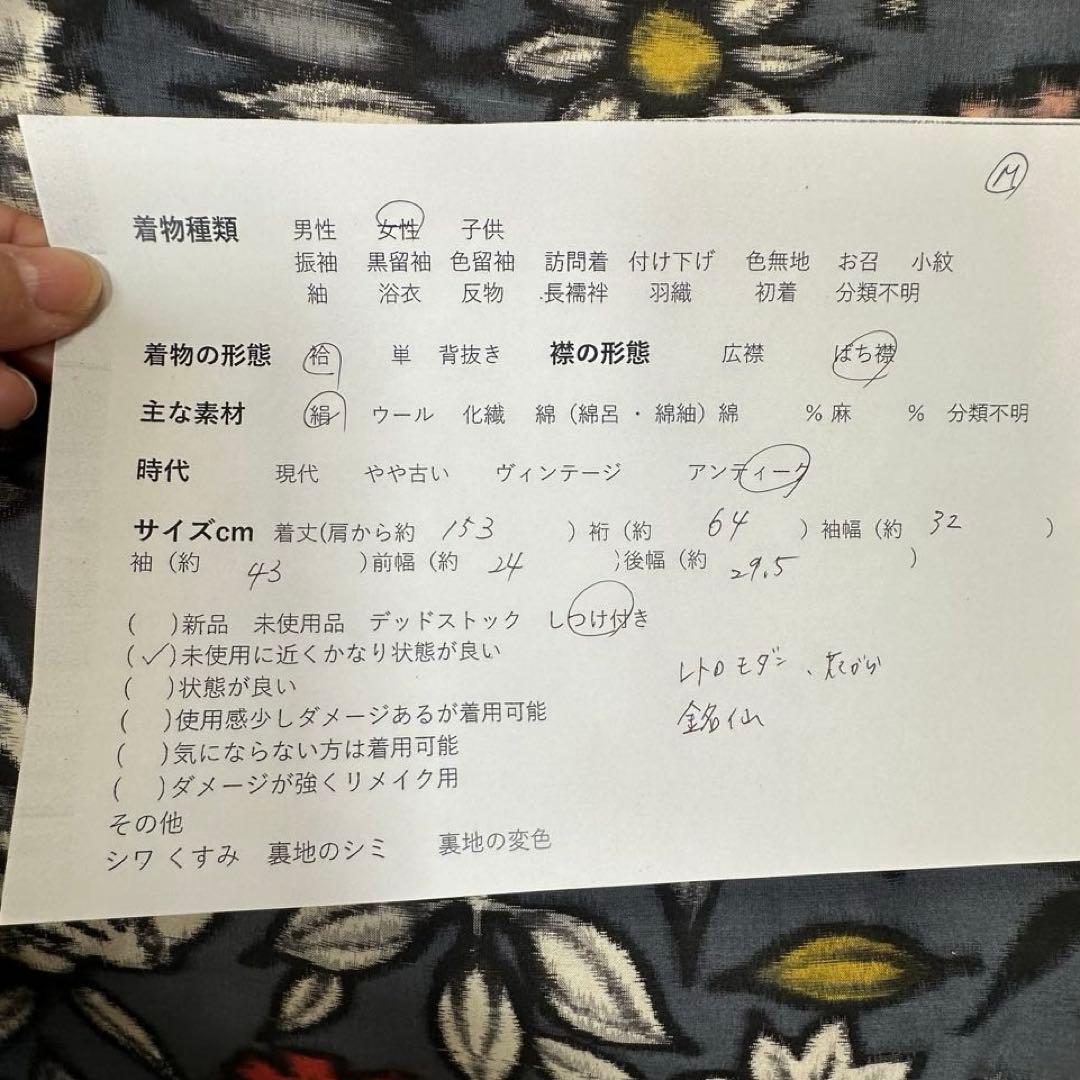 M
着物種類 男性 女性 子供
振袖 黒留袖 色留袖 訪問着 付け下げ 色無地 お召 小紋
紬 浴衣 反物 長襦袢 羽織 初着 分類不明
着物の形態 袷 単 背抜き 襟の形態 広襟 ばち襟
主な素材 絹 ウール 化繊 綿（綿呂・綿紬）綿 % 麻 % 分類不明
時代 現代 やや古い ヴィンテージ アンティーク
サイズcm 着丈(肩から約 153 ) 裄（約 64 ）袖幅（約 32 ）
袖（約 43 )前幅（約 24 )後幅（約 29.5 ）
( )新品 未使用品 デッドストック しつけ付き
(✓)未使用に近くかなり状態が良い
( )状態が良い
( )使用感少しダメージあるが着用可能
( )気にならない方は着用可能
( )ダメージが強くリメイク用
レトロモダン、花がら
銘仙
その他
シワ くすみ 裏地のシミ 裏地の変色